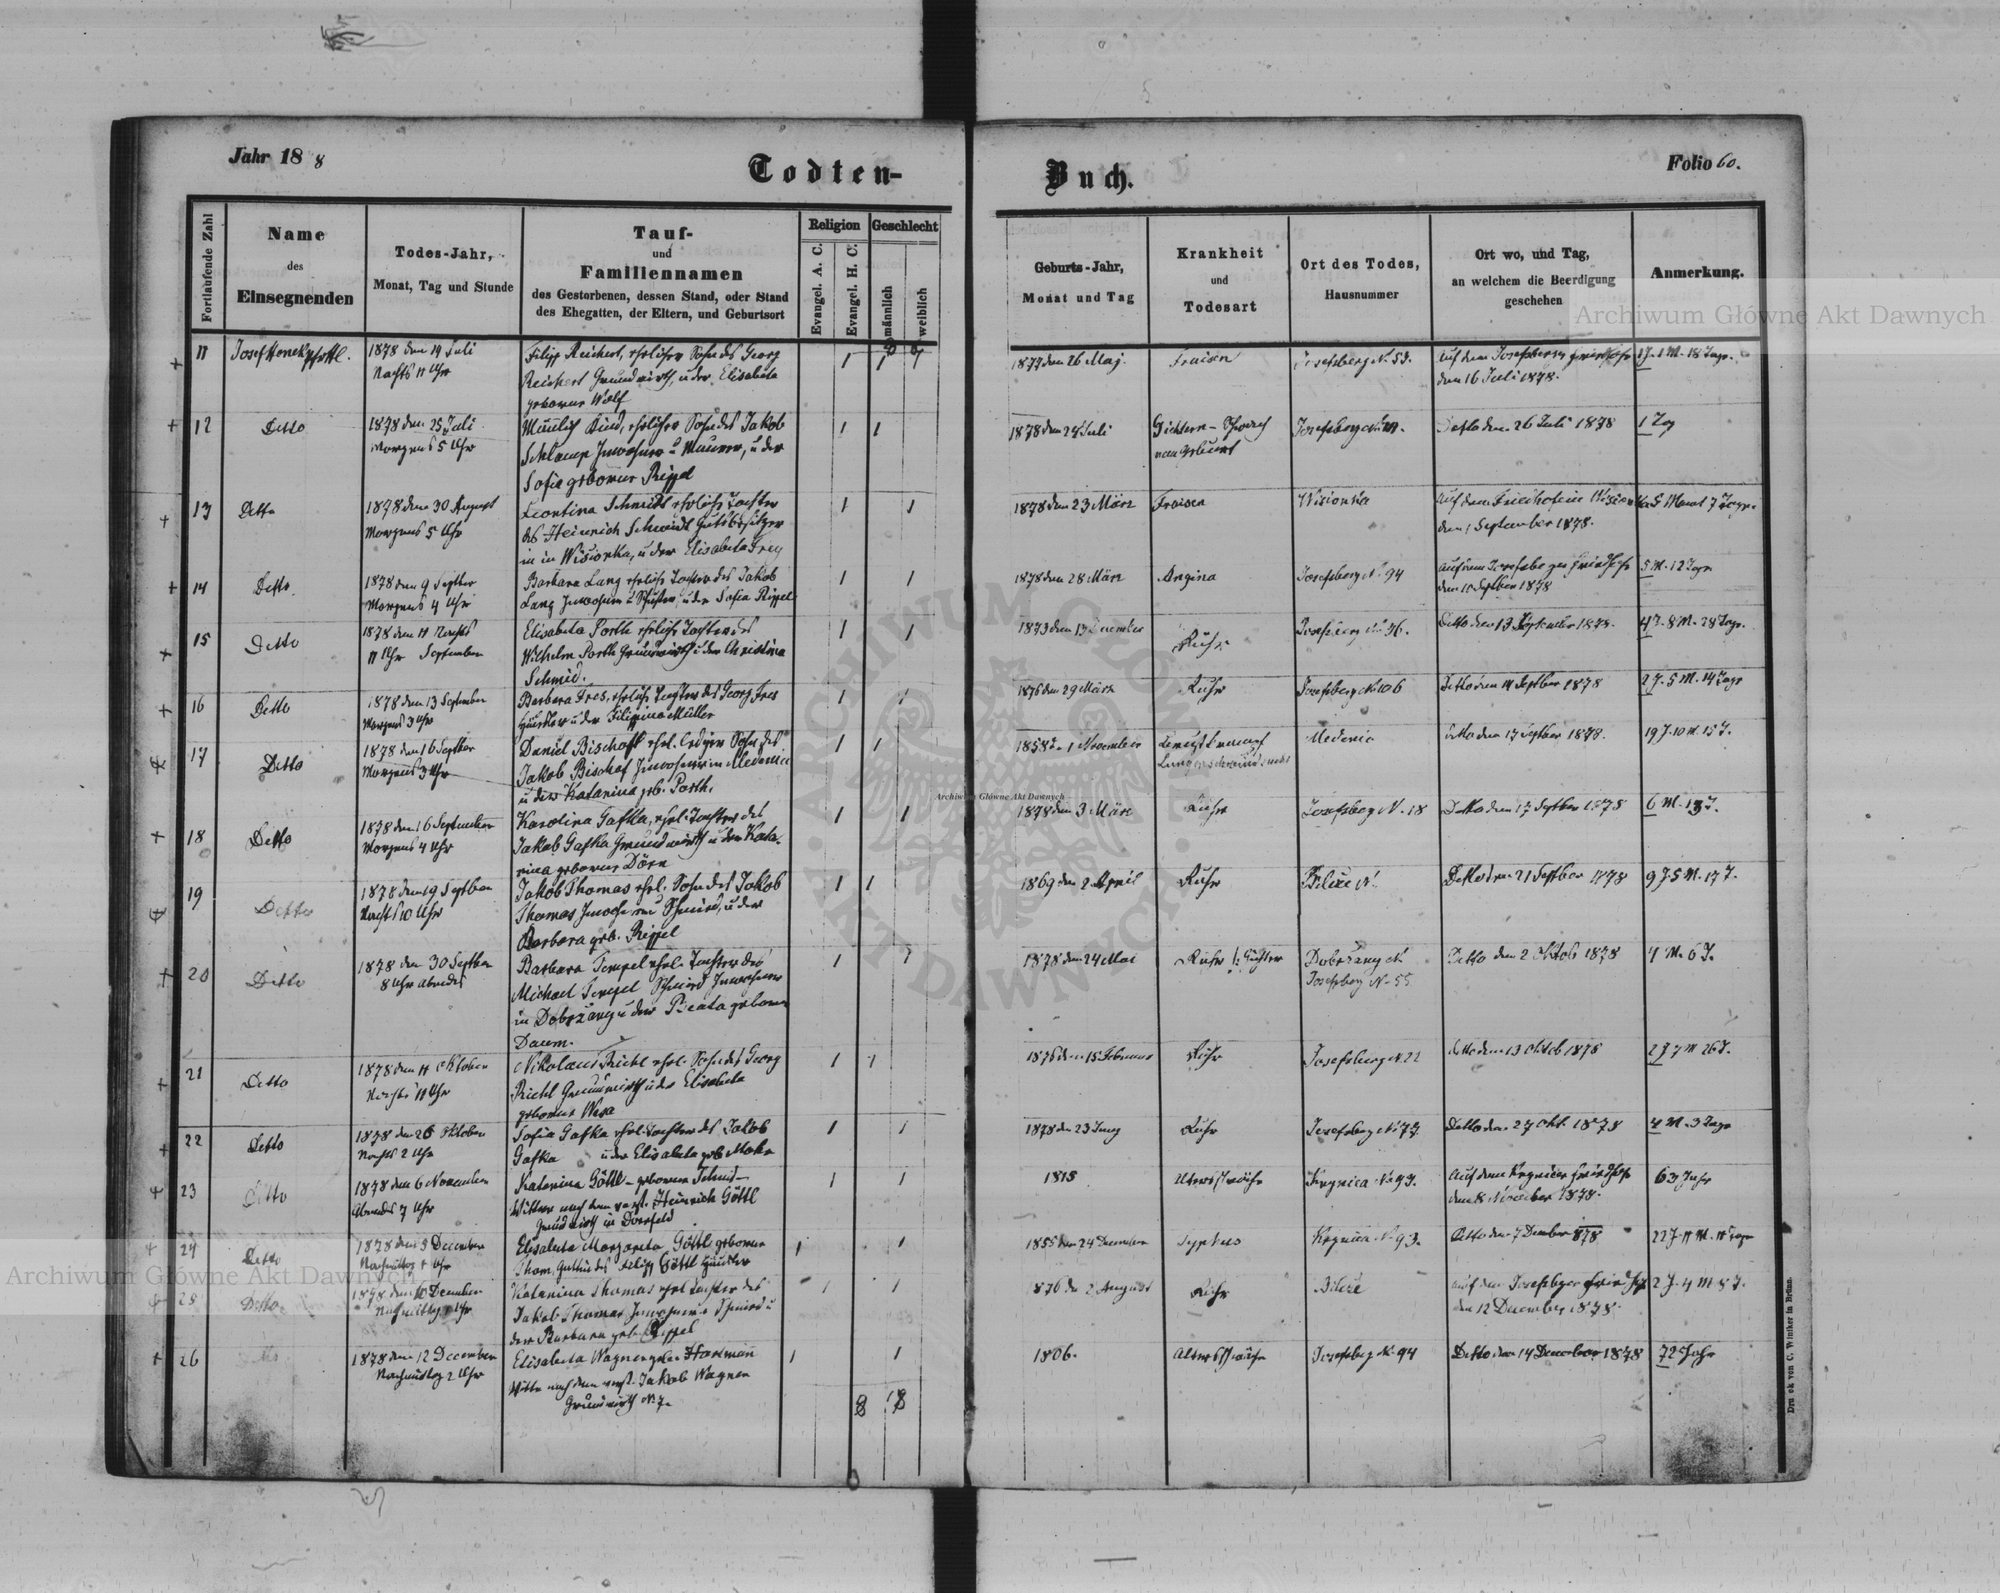 Jahr 18 8
Todten-
Buch.
Folio 60.
Fortlaufende Zahl
Name
des
Einsegnenden
Todes-Jahr,
Monat, Tag und Stunde
Tauf-
und
Familiennamen
des Gestorbenen, dessen Stand, oder Stand
des Ehegatten, der Eltern, und Geburtsort
Religion
Evangel. A. C.
Evangel. H. C.
Geschlecht
männlich
weiblich
Geburts-Jahr,
Monat und Tag
Krankheit
und
Todesart
Ort des Todes,
Hausnummer
Ort wo, und Tag,
an welchem die Beerdigung
geschehen
Anmerkung.
11 Josef Honek
1878 den 14 Juli
Nachts 11 Uhr
Filipp Reichert, ehelicher Sohn des Georg
Reichert Grundwirth, u der Elisabeta
geborene Wolf
den 26 Maj
Fraisen
Josefsberg N. 53.
auf dem Josefsberger Friedhofe
den 16 Juli 1878.
1 J. 1 M. 18 Tage.
12 Detto
1878 den 25 Juli
Morgens 5 Uhr
Kind, ehelicher Sohn des Jakob
Inwohner u Maurer, u der
Sofia geborene Rippel
1878 den 24 Juli
von Geburt
Detto den 26 Juli 1878
1 Tag
13 Detto
1878 den 30 August
Morgens 5 Uhr
Leontina Schmidt eheliche Tochter
des Heinrich Schmidt Gutsbesitzer
in Wisionka, u der Elisabeta Frey
1878 den 23 März
Fraisen
Wisionka
Auf dem Friedhofe in
den 1 September 1878.
5 Monat 7 Tage.
14 Detto
1878 den 9 Septber
Morgens 4 Uhr
Barbara Lang eheliche Tochter des Jakob
Lang Inwohner u Schuster, u der Sofia Rippel
1878 den 28 März
Angina
Josefsberg N. 94
auf dem Josefsberger Friedhofe
den 10 Septber 1878
5 M. 12 Tage
15 Detto
1878 den 11 Nachts
11 Uhr September
Elisabeta Porth eheliche Tochter des
Wilhelm Porth Grundwirth u der Christina
Schmid.
1873 den 13 Dezember
Ruhr
Josefsberg N. 36.
Detto den 13 September 1878.
4 J. 8 M. 28 Tage.
16 Detto
1878 den 13 September
Morgens 3 Uhr
Barbara Fres, eheliche Tochter des Georg Fres
Häusler u der Filippina Müller
1876 den 29 März
Ruhr
Josefsberg N. 106
Detto den 14 Septber 1878
2 J. 5 M. 14 Tage
17 Detto
1878 den 16 Septber
Morgens 3 Uhr
Daniel Bischoff ehel. lediger Sohn des
Jakob Bischof Inwohner in Medenice
u der Katarina geb. Porth.
1858 1 November
Medenice
Detto den 17 Septber 1878.
19 J. 10 M. 15 T.
18 Detto
1878 den 16 September
Morgens 4 Uhr
Karolina Gafka, ehel. Tochter des
Jakob Gafka Grundwirth u der Kata-
rina geborene Dörn
1878 den 3 März
Ruhr
Josefsberg N. 18
Detto den 17 Septber 1878
6 M. 13 T.
19 Detto
1878 den 19 Septber
Nachts 10 Uhr
Jakob Thomas ehel. Sohn des Jakob
Thomas Inwohner u Schmied, u der
Barbara geb. Rippel
1869 den 2 April
Ruhr
Bilcze N.
Detto den 21 Septber 1878
9 J. 5 M. 17 T.
20 Detto
1878 den 30 Septber
8 Uhr abends
Barbara Tempel ehel. Tochter des
Michael Tempel Schmied Inwohner
in Dobrzany u der Beata geborene
Daum.
1878 den 24 Mai
Ruhr
Dobrzany N.
Josefsberg N. 55
Detto den 2 Oktob 1878
4 M. 6 T.
21 Detto
1878 den 11 Oktober
Nachts 11 Uhr
Nikolaus Richl ehel. Sohn des Georg
Richl Grundwirth u der Elisabeta
geborene
1876 den 15 Februar
Ruhr
Josefsberg N 22
Detto den 13 Oktob 1878
2 J 7 M 26 T.
22 Detto
1878 den 26 Oktober
Nachts 2 Uhr
Sofia Gafka ehel. Tochter des Jakob
Gafka u der Elisabeta geb. Mohr
1878 den 23 Juny
Ruhr
Josefsberg N. 73.
Detto den 27 Okt. 1878
4 M. 3 Tage
23 Detto
1878 den 6 November
Abends 7 Uhr
Katarina Göttl - geborene Schmid -
Witwe nach dem verst. Heinrich Göttl
Grundwirth in Dornfeld
1815
Altersschwäche
Krynica N. 93.
Auf dem Krynicer Friedhofe
den 8 November 1878.
63 Jahr
24 Detto
1878 den 5 December
Elisabeta Margareta Göttl geborene
Thom, Gattin des Filipp Göttl Häusler
1855 den 24 December
Typhus
Krynica N. 93.
Detto den 7 Dember 878
22 J. 11 M. 11 Tage
25 Detto
1878 den 10 December
Nachmittag Uhr
Katarina Thomas ehel Tochter des
Jakob Thomas Inwohner u Schmied u
der Barbara geb. Rippel
1876 den 2 August
Ruhr
Bilcze
auf dem Josefsberger Friedhofe
den 12 December 1878.
2 J. 4 M 8 T.
26
1878 den 12 December
Nachmittag 2 Uhr
Elisabeta Wagner geb. Hartmann
Witwe nach dem verst. Jakob Wagner
Grundwirth N. 7.
1806.
Altersschwäche
Josefsberg N. 94
Detto den 14 December 1878
72 Jahr
8 8
Druck von C. Winiker in Brünn.
Archiwum Główne Akt Dawnych
Archiwum Główne Akt Dawnych
Archiwum Główne Akt Dawnych
ARCHIWUM GŁÓWNE AKT DAWNYCH